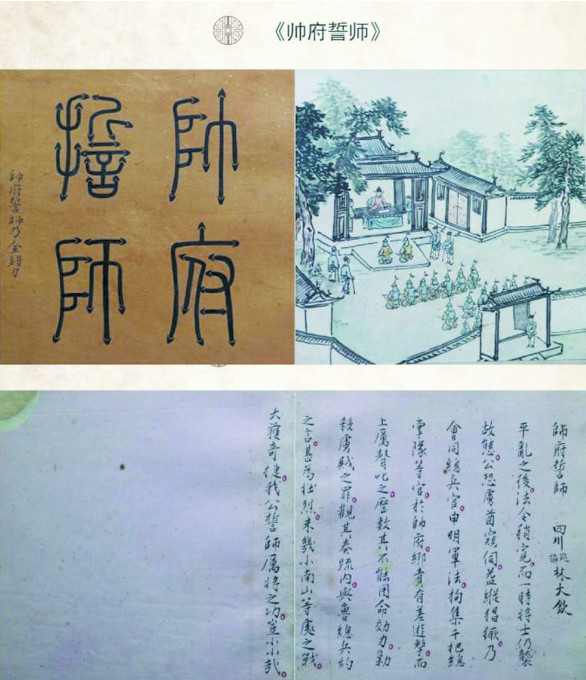 《帅府誓师》
帥府
誓師
帥府誓師乃金錯刀
帥府誓師 四川 林大欽
平亂之後法令稍寬而一時將士仍襲
故態公恐虜酋窺伺益縱猖獗乃
會同總兵官申明軍法拘集千把總
掌隊等官於帥府綁責有差遊擊而
上厲聲叱之歷數其不能用命効力勦
殺虜賊之罪觀其奏疏內與魯總兵約
之言甚為壯烈未幾小南山等處之戰
大獲奇捷我公誓師厲將之功豈小小哉